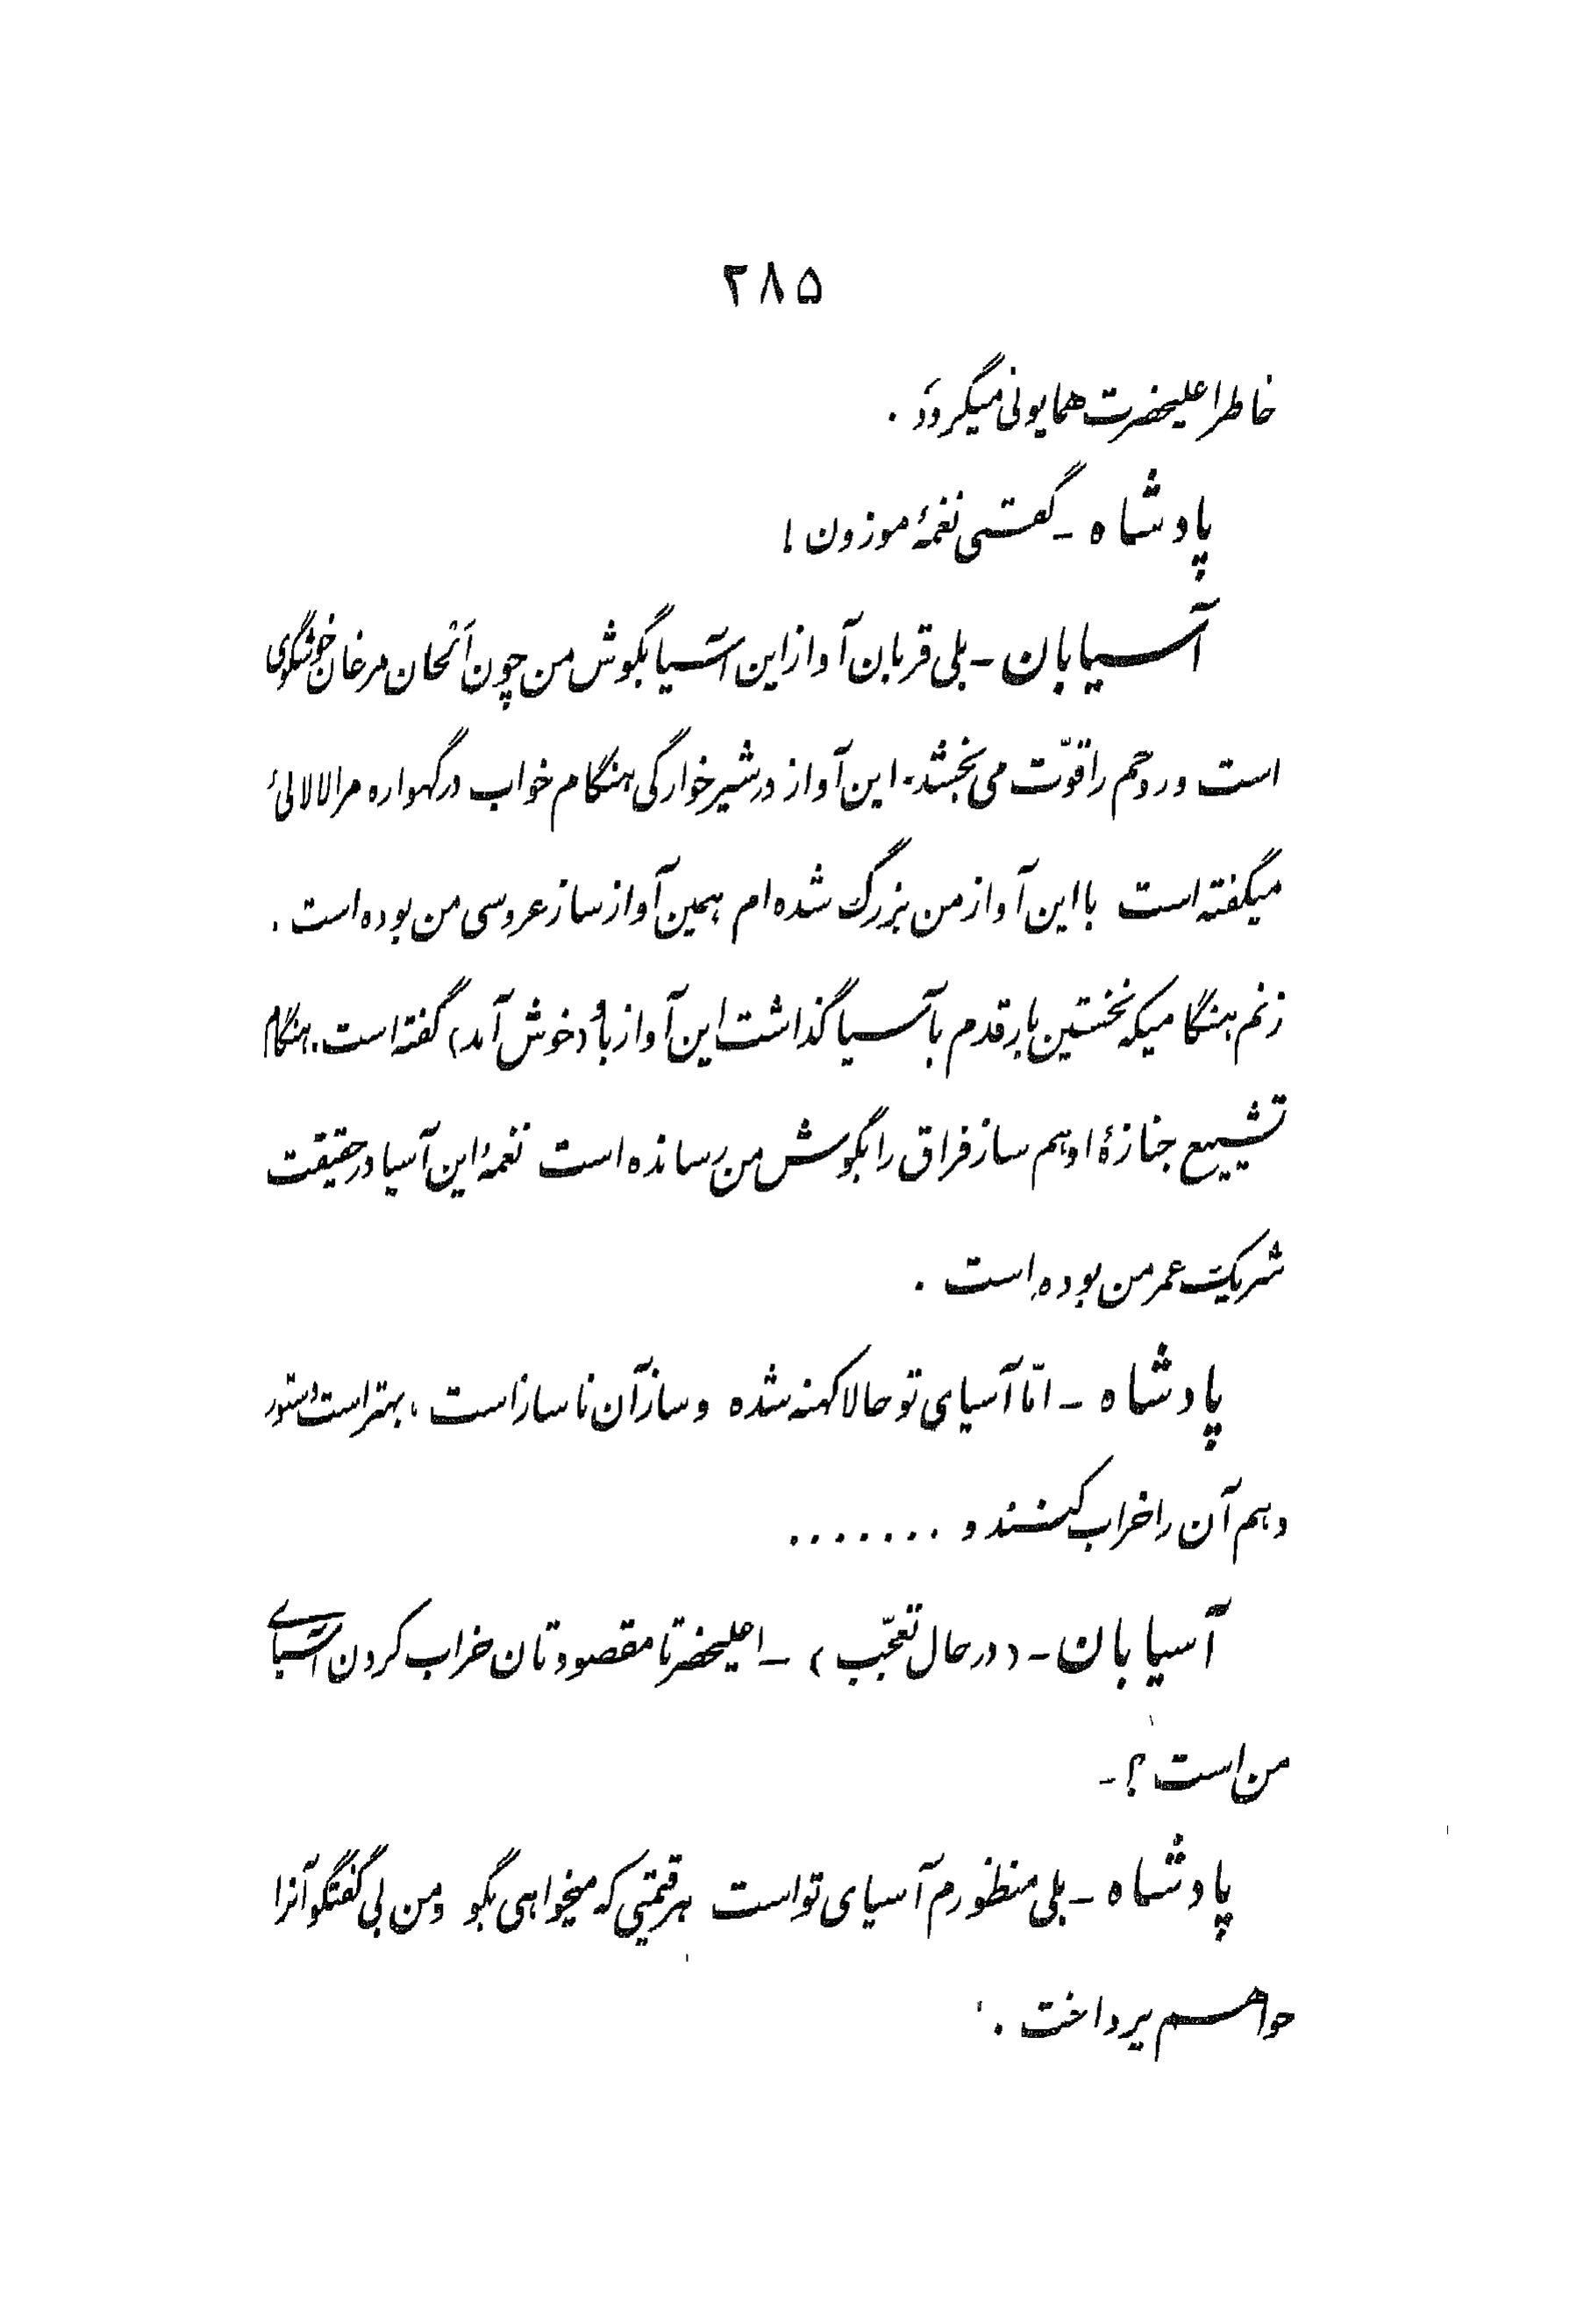 ۲۸۵
خاطر اعلیحضرت همایونی میگردد .
پادشاه ـ گفتی نغمهٔ موزون !
آسیابان ـ بلی قربان آواز این آسیا بگوش من چون اَلحان مرغان خوشگوی
است و روحم را قوّت می بخشد . این آواز در شیرخوارگی هنگام خواب در گهواره مرا لالائی
میگفته است با این آواز من بزرگ شده ام همین آواز ساز عروسی من بوده است .
زنم هنگامیکه نخستین بار قدم بآسیا گذاشت این آواز باُو (خوش آمد) گفته است . هنگام
تشییع جنازهٔ او هم ساز فراق را بگوش من رسانده است نغمهٔ این آسیا در حقیقت
شریک عمر من بوده است .
پادشاه ـ امّا آسیای تو حالا کهنه شده و ساز آن ناساز است ، بهتر است دستور
دهم آن را خراب کنند و . . . . . . .
آسیابان ـ (در حال تعجّب) ـ اعلیحضرتا مقصودتان خراب کردن آسیای
من است ؟ ـ
پادشاه ـ بلی منظورم آسیای تو است هر قیمتی که میخواهی بگو و من بی گفتگو آنرا
خواهم پرداخت .